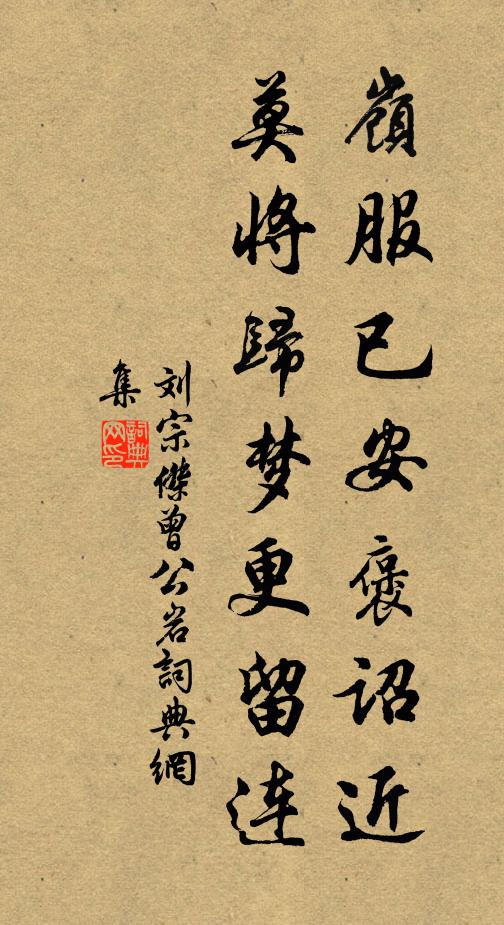 嶺服已安褒詔近
莫將歸梦更留连
刘宗傑曾公岩詞典網
集
詞典网印